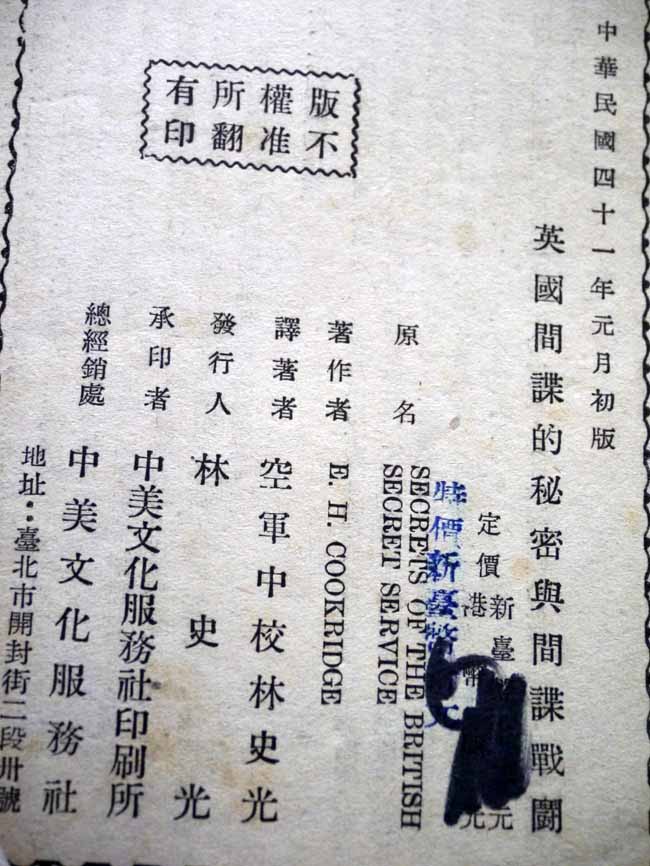 中華民國四十一年元月初版
英國間諜的秘密與間諜戰鬪
定價新臺
港幣
元
特價新臺幣
元
原名 SECRETS OF THE BRITISH
SECRET SERVICE
著作者 E. H. COOKRIDGE
譯著者 空軍中校林史光
發行人 林史光
承印者 中美文化服務社印刷所
總經銷處 中美文化服務社
地址：臺北市開封街二段卅號
版權所有
不准翻印